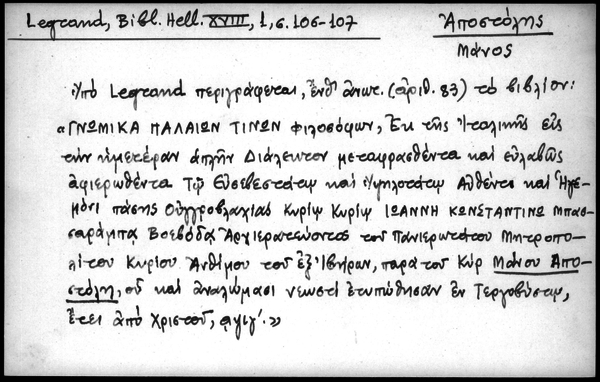 Legrand, Bibl. Hell. XVIII, 1, σ. 106-107
Ἀποστόλης
Μάνος
Ὑπὸ Legrand περιγράφεται, ἔνθ' ἀνωτ. (ἀριθ. 83) τὸ βιβλίον:
«ΓΝΩΜΙΚΑ ΠΑΛΑΙΩΝ ΤΙΝΩΝ φιλοσόφων, Ἐκ τῆς Ἰταλικῆς εἰς
τὴν ἡμετέραν ἁπλῆν Διάλεκτον μεταφρασθέντα καὶ εὐλαβῶς
ἀφιερωθέντα Τῷ Εὐσεβεστάτῳ καὶ Ὑψηλοτάτῳ Αὐθέντῃ καὶ Ἡγε-
μόνι πάσης Οὐγγροβλαχίας Κυρίῳ Κυρίῳ ΙΩΑΝΝΗ ΚΩΝΣΤΑΝΤΙΝῼ Μπασ-
σαράμπᾳ Βοεβόδᾳ Ἀρχιερατεύοντος τοῦ Πανιερωτάτου Μητροπο-
λίτου Κυρίου Ἀνθίμου τοῦ ἐξ Ἰβήρων, παρὰ τοῦ Κὺρ Μάνου Ἀπο-
στόλη, οὗ καὶ ἀναλώμασι νεωστὶ ἐτυπώθησαν ἐν Τεργοβύστῳ,
ἔτει ἀπὸ Χριστοῦ, ͵αψιγʹ.»